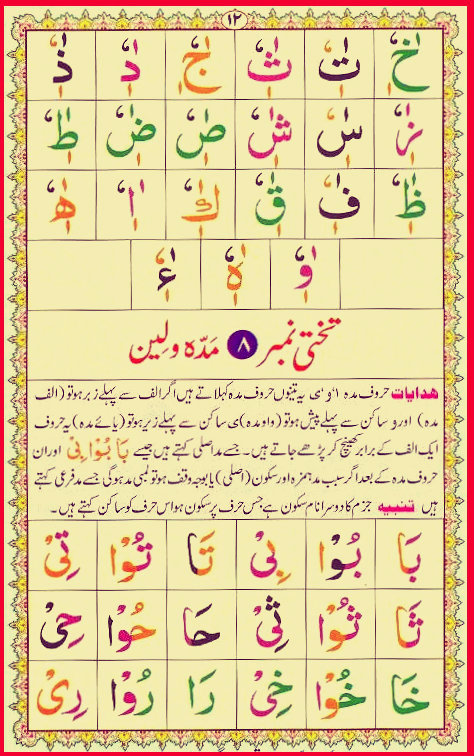 ۱۲
خٰٖٗ تٰٖٗ ثٰٖٗ جٰٖٗ دٰٖٗ ذٰٖٗ
زٰٖٗ سٰٖٗ شٰٖٗ صٰٖٗ ضٰٖٗ طٰٖٗ
ظٰٖٗ فٰٖٗ قٰٖٗ كٰٖٗ اٰٖٗ ھٰٖٗ
وٰٖٗ هٰٖٗ ءٰٖٗ
تختی نمبر ۸ مَدّہ و لِین
ھدایات حروف مدہ ا‘و‘ی یہ تینوں حروف مدہ کہلاتے ہیں اگر الف سے پہلے زبر ہو تو (الف
مدہ) اور و ساکن سے پہلے پیش ہو تو (واو مدہ) ی ساکن سے پہلے زیر ہو تو (یائے مدہ) یہ حروف
ایک الف کے برابر کھینچ کر پڑھے جاتے ہیں۔ جسے مد اصلی کہتے ہیں جیسے بَا بُوْا بِيْ اور ان
حروف مدہ کے بعد اگر سبب مد ہمزہ اور سکون (اصلی) یا بوجہ وقف ہو تو لمبی مد ہوگی جسے مد فرعی کہتے
ہیں تنبیہ جزم کا دوسرا نام سکون ہے جس حرف پر سکون ہو اس حرف کو ساکن کہتے ہیں۔
بَا بُوْا بِيْ تَا تُوْا تِيْ
ثَا ثُوْا ثِيْ حَا حُوْا حِيْ
خَا خُوْا خِيْ رَا رُوْا رِيْ